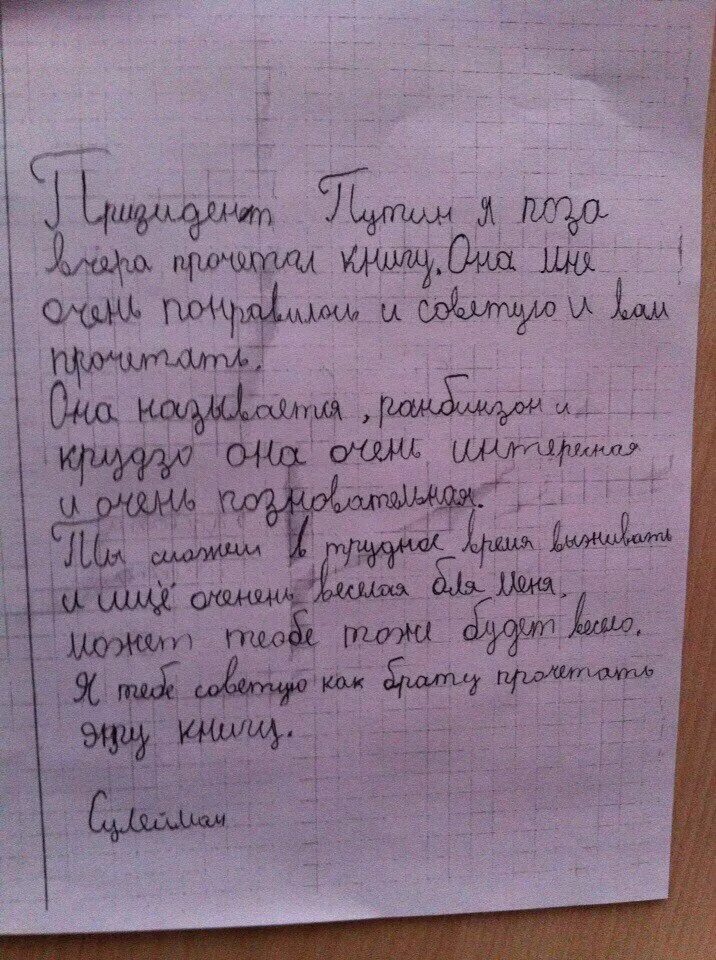 Призидент Путин я поза
вчера прочетал книгу. Она мне
очень понравилось и советую и вам
прочетать.
Она называется, ранбинзон и
крудзо она очень интересная
и очень позновательная.
Ты сможеш в трудное время выживать
и ищё оченень веселая бля меня.
может теобе тоже будет весело.
Я тебе советую как брату прочетать
эту книгу.
Сулейман